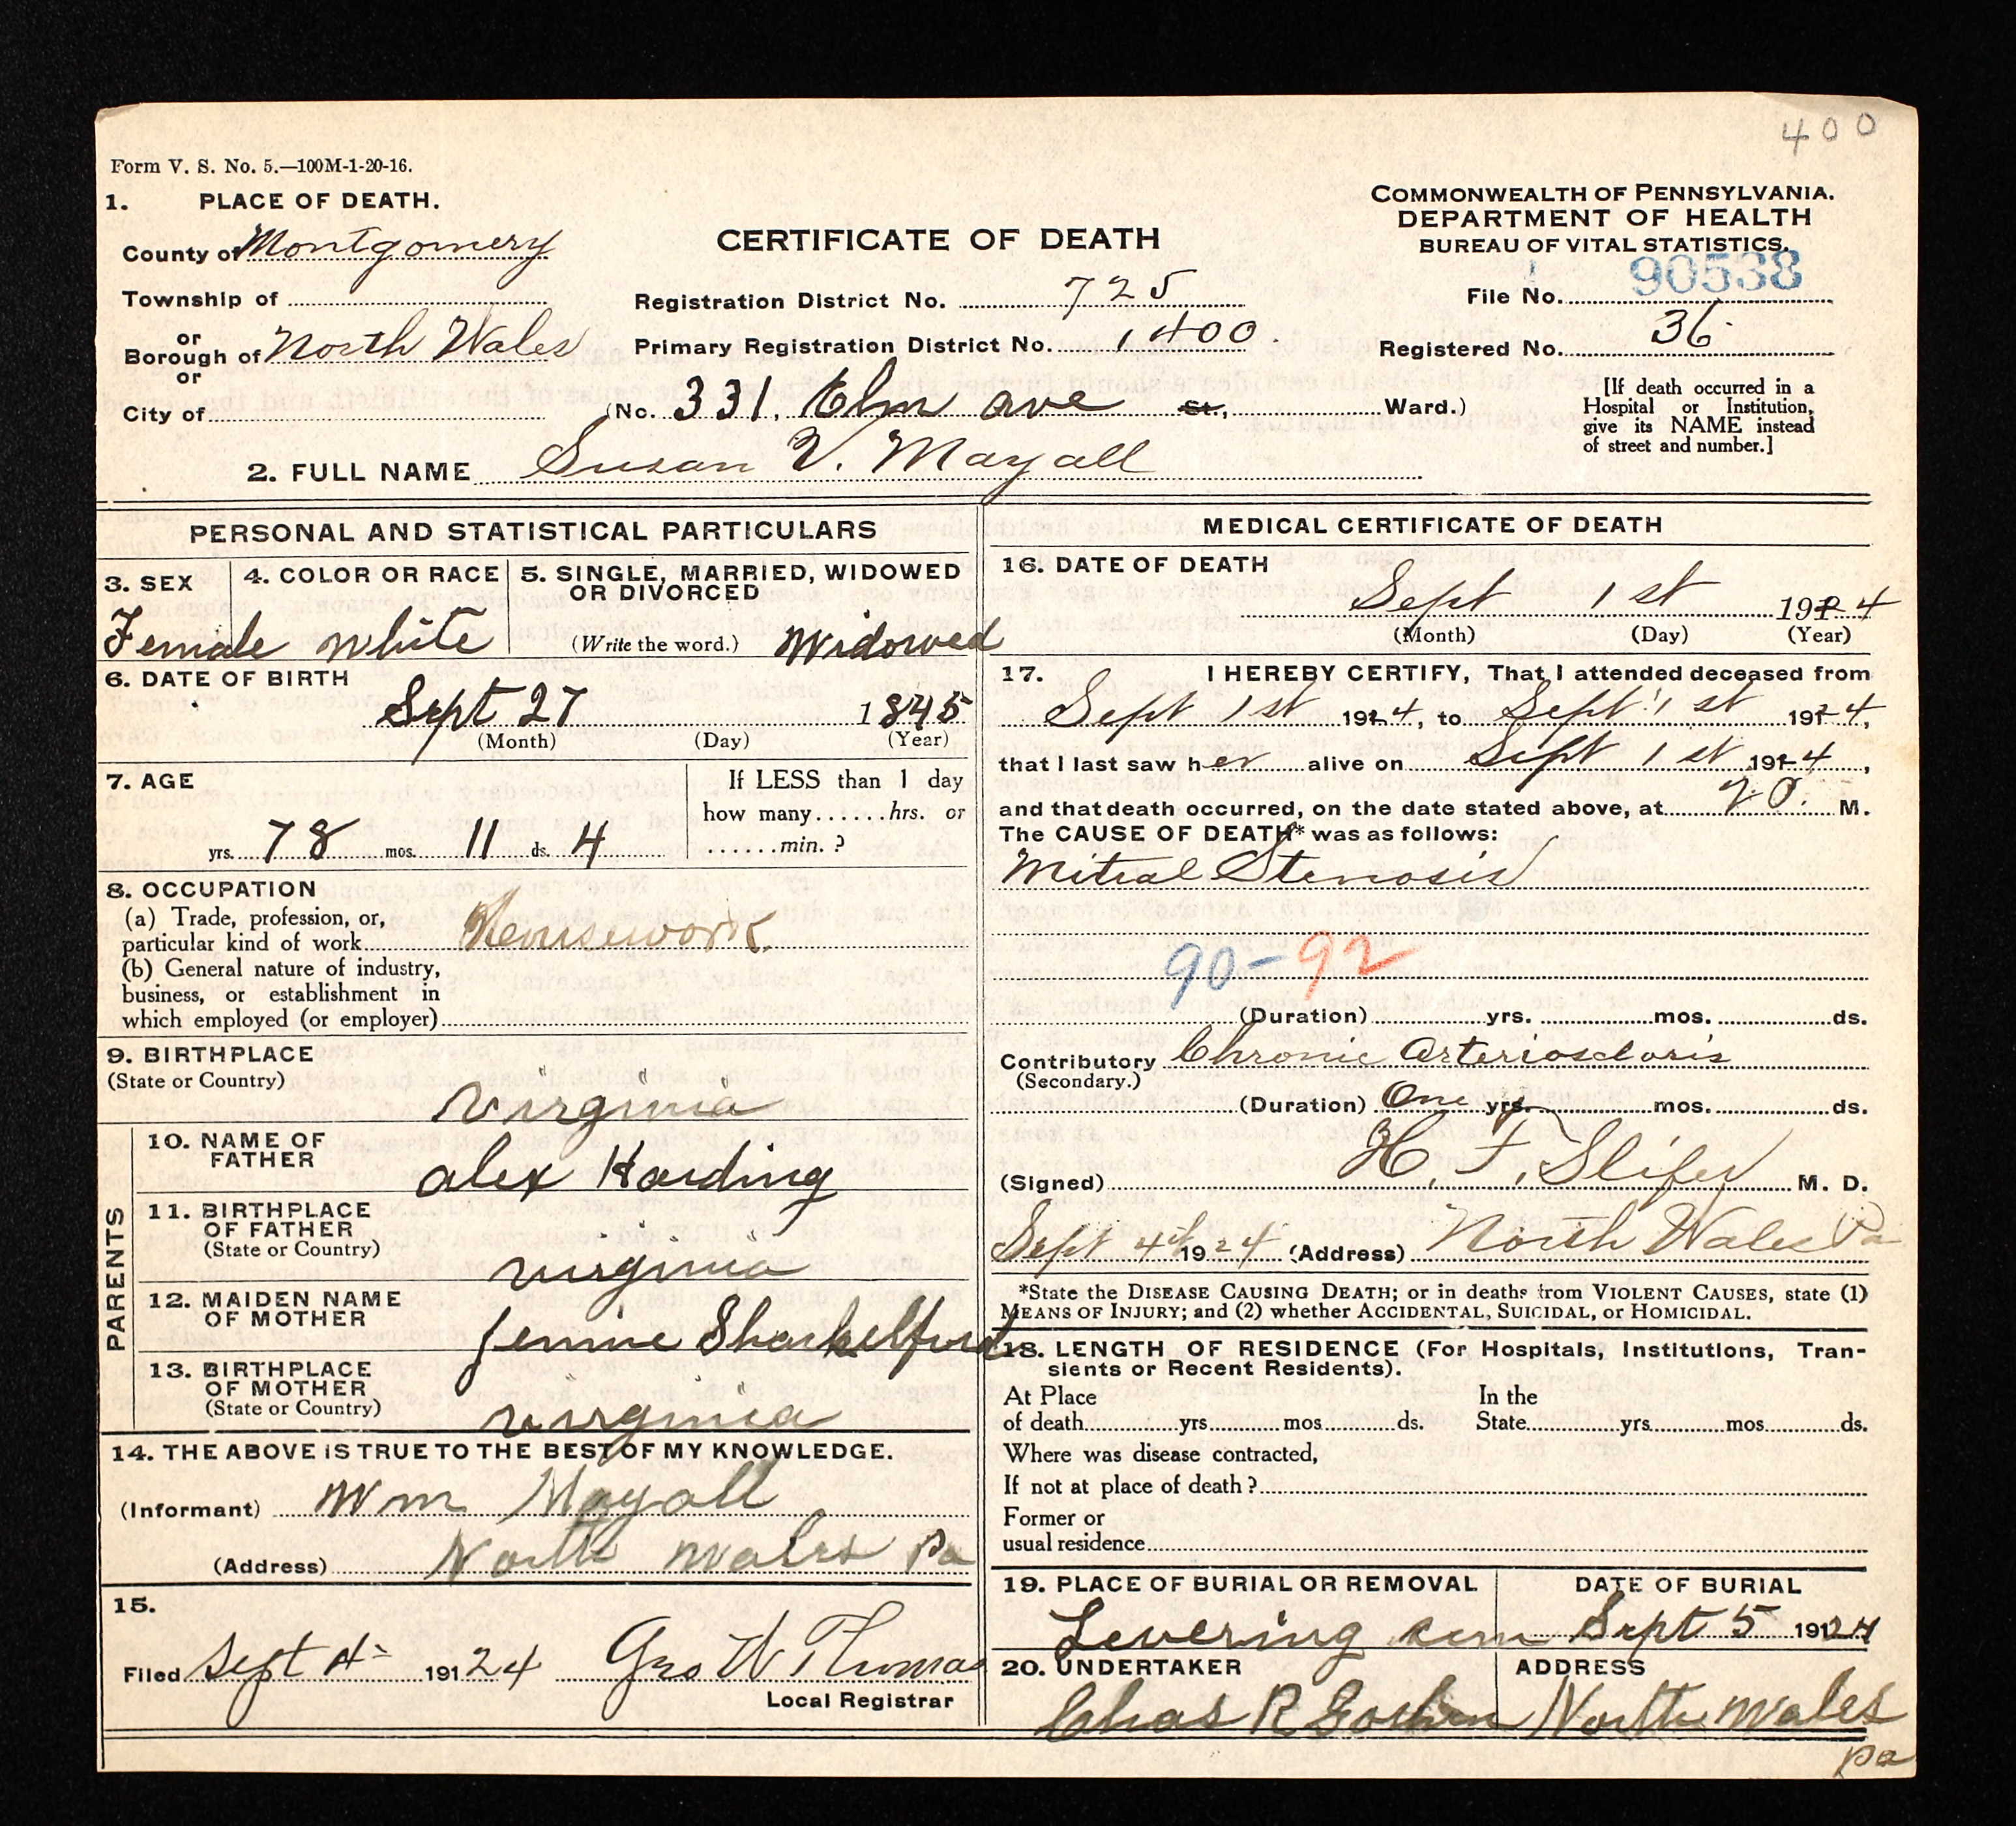 400
Form V. S. No. 5.—100M-1-20-16.
1. PLACE OF DEATH.
County of Montgomery
Township of
or
Borough of North Wales
or
City of
CERTIFICATE OF DEATH
Registration District No. 725
Primary Registration District No. 1400.
(No. 331. Elm ave St., Ward.)
COMMONWEALTH OF PENNSYLVANIA.
DEPARTMENT OF HEALTH
BUREAU OF VITAL STATISTICS.
File No. 90538
Registered No. 36
[If death occurred in a
Hospital or Institution,
give its NAME instead
of street and number.]
2. FULL NAME Susan V. Mayall
PERSONAL AND STATISTICAL PARTICULARS
3. SEX
Female
4. COLOR OR RACE
White
5. SINGLE, MARRIED, WIDOWED
OR DIVORCED
(Write the word.) Widowed
6. DATE OF BIRTH
Sept 27 1845
(Month) (Day) (Year)
7. AGE
yrs. 78 mos. 11 ds. 4
If LESS than 1 day
how many......hrs. or
......min. ?
8. OCCUPATION
(a) Trade, profession, or,
particular kind of work Housework.
(b) General nature of industry,
business, or establishment in
which employed (or employer)
9. BIRTHPLACE
(State or Country)
Virginia
PARENTS
10. NAME OF
FATHER
Alex Harding
11. BIRTHPLACE
OF FATHER
(State or Country)
Virginia
12. MAIDEN NAME
OF MOTHER
Jennie Sharkelford
13. BIRTHPLACE
OF MOTHER
(State or Country)
Virginia
14. THE ABOVE IS TRUE TO THE BEST OF MY KNOWLEDGE.
(Informant) Wm Mayall
(Address) North Wales Pa
15.
Filed Sept 4 191 24 Geo W Thomas
Local Registrar
MEDICAL CERTIFICATE OF DEATH
16. DATE OF DEATH
Sept 1st 1924
(Month) (Day) (Year)
17. I HEREBY CERTIFY, That I attended deceased from
Sept 1st 1924, to Sept 1st 1924,
that I last saw her alive on Sept 1st 1924,
and that death occurred, on the date stated above, at M.
The CAUSE OF DEATH* was as follows:
Mitral Stenosis
90-92
(Duration) yrs. mos. ds.
Contributory Chronic Arterioscloris
(Secondary.)
(Duration) One yrs. mos. ds.
(Signed) H. F. Slifer M. D.
Sept 4th 1924 (Address) North Wales Pa
*State the DISEASE CAUSING DEATH; or in deaths from VIOLENT CAUSES, state (1)
MEANS OF INJURY; and (2) whether ACCIDENTAL, SUICIDAL, or HOMICIDAL.
18. LENGTH OF RESIDENCE (For Hospitals, Institutions, Tran-
sients or Recent Residents).
At Place
of death yrs mos ds.
In the
State yrs mos ds.
Where was disease contracted,
If not at place of death ?
Former or
usual residence
19. PLACE OF BURIAL OR REMOVAL
Levering cem
DATE OF BURIAL
Sept 5 1924
20. UNDERTAKER
Chas R
ADDRESS
North Wales
Pa